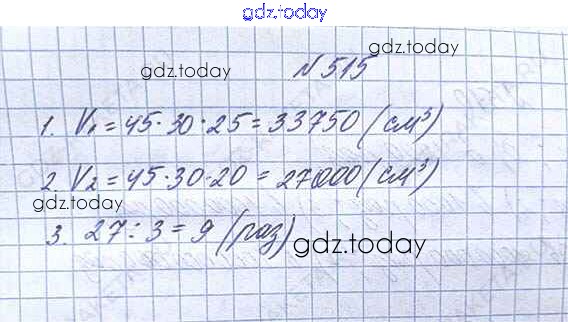 gdz.today
gdz.today
gdz.today
№ 515
1. V₁ = 45·30·25 = 33750 (см³)
2. V₂ = 45·30·20 = 27000 (см³)
gdz.today
3. 27 : 3 = 9 (раз)
gdz.today